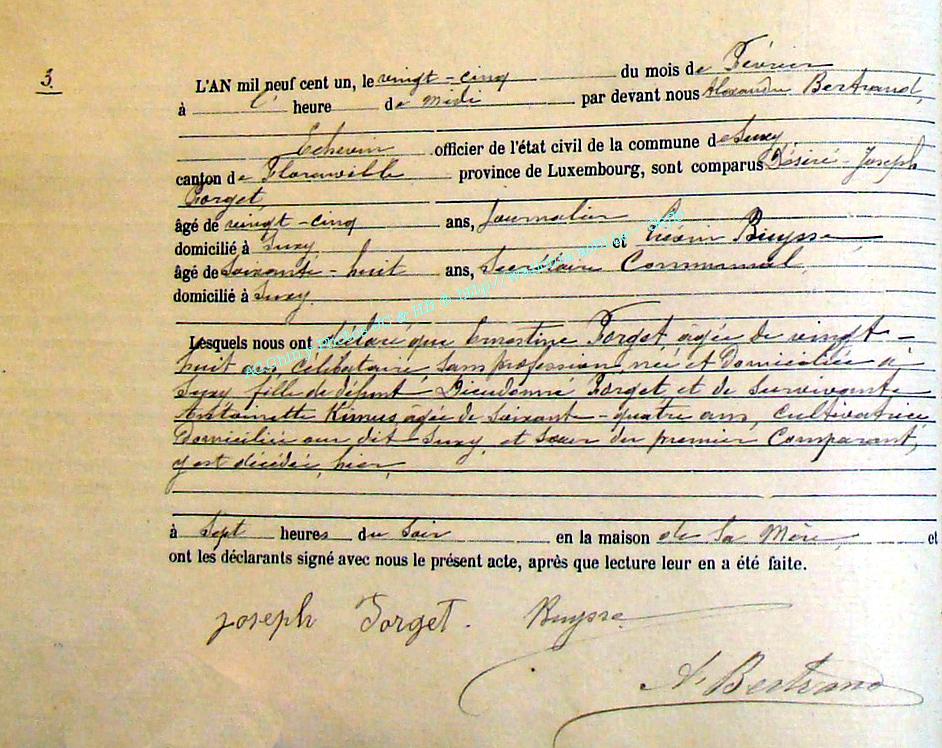 3.
L'AN mil neuf cent un, le vingt-cinq du mois de Février
à l' heure de midi par devant nous Alexandre Bertrand,
Echevin officier de l'état civil de la commune de Suxy
canton de Florenville province de Luxembourg, sont comparus Désiré-Joseph
Forget,
âgé de vingt-cinq ans, Journalier
domicilié à Suxy et Buysse,
âgé de Soixante-huit ans, Secrétaire Communal,
domicilié à Suxy.
Lesquels nous ont déclaré que Ernestine Forget, agée de vingt-
huit ans Célibataire, sans profession née et Domiciliée à
Suxy fille de défunt Dieudonné Forget et de Survivante
Antoinette Kimus agée de Soixante-quatre ans, Cultivatrice
Domiciliée au dit Suxy, et sœur du premier Comparant,
y est décédée, hier,
à Sept heures du Soir en la maison de Sa Mère, et
ont les déclarants signé avec nous le présent acte, après que lecture leur en a été faite.
Joseph Forget. Buysse
A. Bertrand